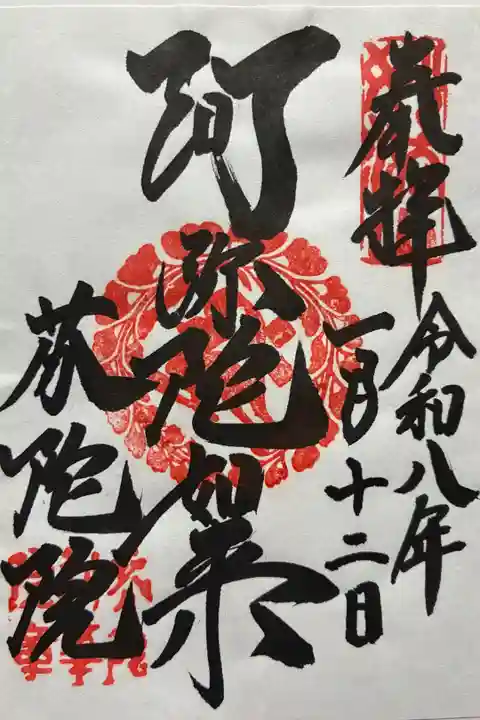 拝
令和八年
一月十二日
阿弥陀如来
芬陀院